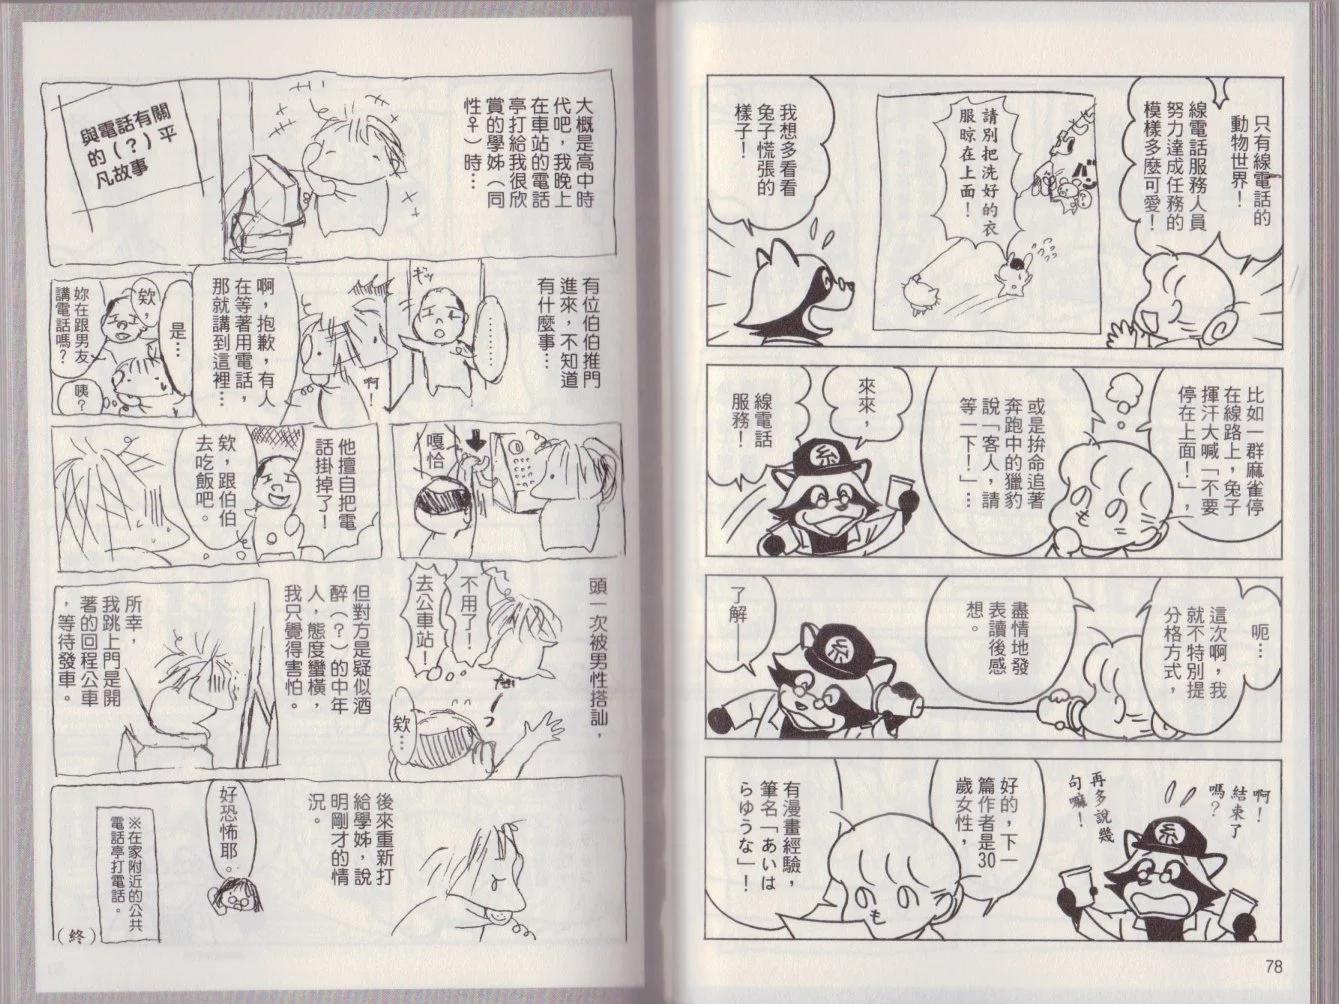 只有線電話的
動物世界！
線電話服務人員
努力達成任務的
模樣多麼可愛！
請別把洗好的衣
服晾在上面！
我想多看看
兔子慌張的
樣子！
比如一群麻雀停
在線路上，兔子
揮汗大喊「不要
停在上面！」，
或是拚命追著
奔跑中的獵豹
說「客人，請
等一下！」…
來來，
線電話
服務！
糸
呃…
這次啊，我
就不特別提
分格方式，
盡情地發
表讀後感
想。
糸
了解——
啊！
結束了
嗎？
再多說幾
句嘛！
糸
好的，下一
篇作者是30
歲女性，
有漫畫經驗，
筆名「あいは
らゆうな」！
78
與電話有關
的（？）平
凡故事
大概是高中時
代吧，我晚上
在車站的電話
亭打給我很欣
賞的學姊（同
性♀）時…
有位伯伯推門
進來，不知道
有什麼事…
…………
ギッ
啊！
啊，抱歉，有人
在等著用電話，
那就講到這裡…
是…
欸，
妳在跟男友
講電話嗎？
咦？
嘎恰
他擅自把電
話掛掉了！
欸，跟伯伯
去吃飯吧。
頭一次被男性搭訕，
不用了！
去公車站！
欸…
但對方是疑似酒
醉（？）的中年
人，態度蠻橫，
我只覺得害怕。
所幸，
我跳上門是開
著的回程公車
，等待發車。
後來重新打
給學姊，說
明剛才的情
況。
好恐怖耶。
※在家附近的公共
電話亭打電話。
（終）